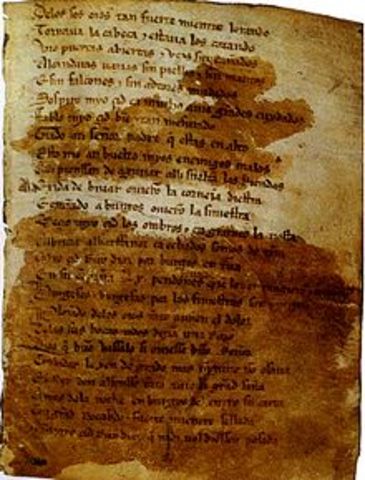 Delos sos oios tan fuerte mientre lorando
Tornaua la cabeça e estaua los catando
Vio puertas abiertas e vços sin cañados
Alcandaras uazias sin pielles e sin mantos
E sin falcones e sin adtores mudados
Sospiro myo çid ca mucho auie grandes cuydados
Fablo myo çid bien e tan mesurado
Grado a ti señor padre q estas en alto
Esto me an buelto myos enemigos malos
Alli pienssan de aguijar alli sueltan las Riendas
Ala exida de biuar ouieron la corneia diestra
E entrando a burgos ouieron la siniestra
Meçio myo çid los ombros e engrameo la tiesta
Albricia albarffanez ca echados somos de tierra
Myo çid Ruy diaz por burgos
En su conpaña .Lx. pendones
Burgeses e burgesas por las finiestras son
Plorando delos oios tanto auien el dolor
Delas sus bocas todos dizian una Razon
Dios q buen vassalo si ouiesse buen Señor
Conbidar le yen de grado mas ninguno no osaua
El Rey don alfonsso tanto auie la grand saña
Antes dela noche en burgos del entro su carta
Con grand Recabdo e fuerte mientre sellada
Que a myo çid Ruy diaz q nadi nol diessen posada